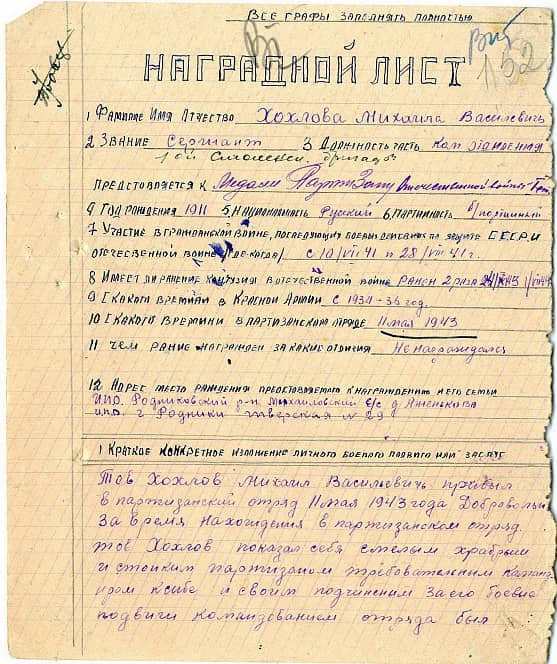 Все графы заполнять полностью
Вп
152
НАГРАДНОЙ ЛИСТ
1 Фамилие Имя Отчество Хохлова Михаила Васильевичь
2 Звание Сержант 3 Должность часть Ком отделения
1ой Смоленск. бригады
представляется к Медали Партизану Отечественной войны
4 Год рандения 1911 5 Национальность Русский 6 Партийность б/портийный
7 Участие в гражданской войне, последующих боевых действиях по защите С.С.С.Р. и
отечественной войне (где когда) с 10/VII 41 п 28/VIII 41 г.
8 Имеет ли ранение контузия в отечественной войне Ранен 2 раза
9 С какого времини в Красной Армии с 1934-36 год.
10 С какого времини в партизанском отряде 11 мая 1943
11 Чем рание награжден за какие отличия Не награждался
12 Адрес место рандения предоставляемого к награждению и его семьи
И.П.О. Родниковский р-н Михайловский с/с д.
И.П.О. г Родники тверская № 29
1 Краткое конкретное изложение личного боевого подвига или заслуг
Тов Хохлов Михаил Васильевичь прибыл
в партизанский отряд 11 мая 1943 года Добровольн
За время нахождения в партизанском отряд.
тов Хохлов показал себя смелым храбрым
и стойким партизаном требовательным команд
иром к себе и своим подчиненим За его боевые
подвиги командованием отряда был